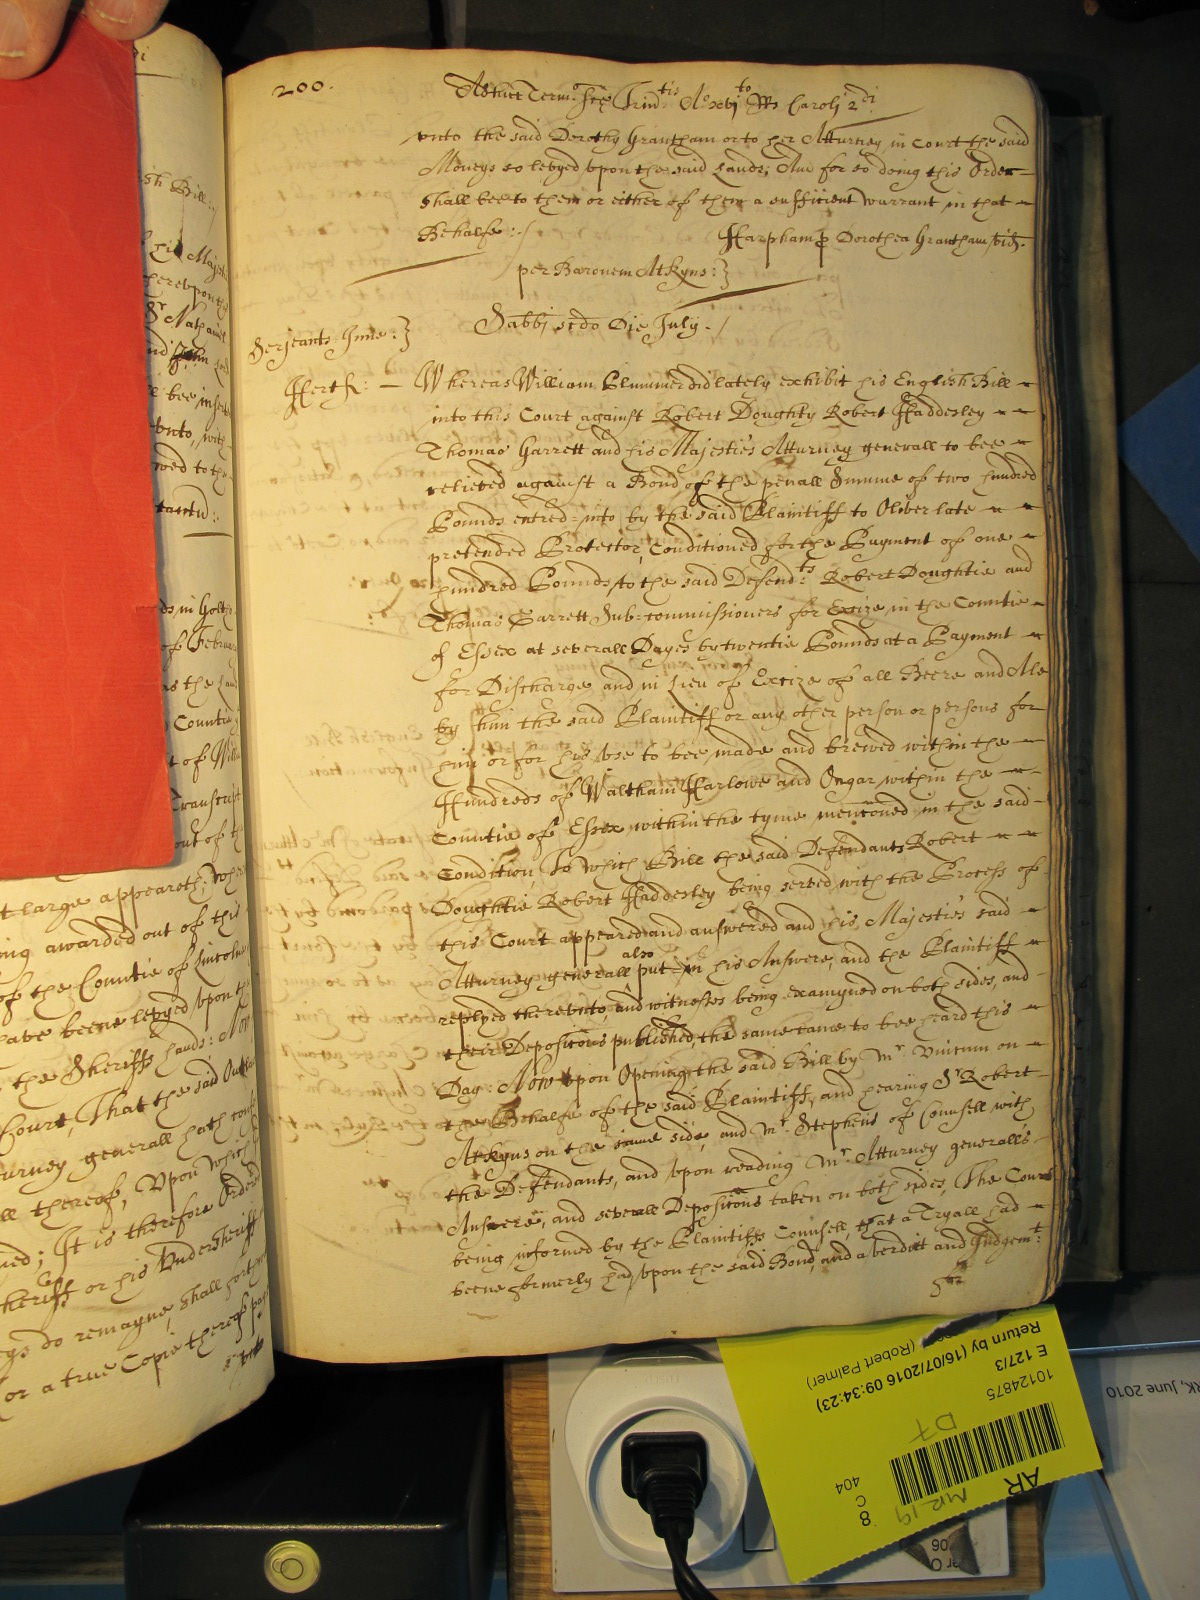 200.
Adhuc Term: Sce Trin:tis Ao xvj to Rs Caroli 2di
vnto the said Dorothy Grantham or to her Atturney in Court the said
Moneys so levyed vpon the said Lands; And for so doing this Order
shall bee to them or either of them a sufficient warrant in that
Behalfe :/
Harpham p Dorothea Grantham vid.
per Baronem Atkyns:
Sabbi scdo Die July./
Serjeants-Inne:
Hertf: — Whereas William Plummer did lately exhibit his English Bill
into this Court against Robert Doughty Robert Haddesley
Thomas Garrett and his Majesties Atturney generall to bee
relieved against a Bond of the penall Summe of two hundred
Pounds entred-into by the said Plaintiff to Oliver late
pretended Protector, Conditioned for the Payment of one
hundred Pounds to the said Defend:ts Robert Doughtie and
Thomas Garrett Sub-commissioners for Excize in the Countie
of Essex at severall Dayes by twentie Pounds at a Payment
for Discharge and in Lieu of Excize of all Beere and Ale
by him the said Plaintiff or any other person or persons for
him or for his vse to bee made and brewed within the
Hundreds of Waltham Harlowe and Ongar within the
Countie of Essex within the tyme mentioned in the said
Condition, To which Bill the said Defendants Robert
Doughtie Robert Haddesley being served with the Process of
this Court appeared and answered and his Majesties said
Atturney generall also put-in his Answere, and the Plaintiff
replyed therevnto, and witnesses being examyned on both sides, and
their Depositions published, the same came to bee heard this
Day: Now vpon Opening the said Bill by Mr. on
the Behalfe of the said Plaintiff, and hearing Sr Robert
Atkyns on the same side, and Mr. Stephens of Counsell with
the Defendants, and vpon reading Mr. Atturney generall's
Answere, and severall Depositions taken on both sides, The Court
being informed by the Plaintiffs Counsell, that a Tryall had
beene formerly had vpon the said Bond, and a verdict and Judgem:t
t large appeareth; whe
ing awarded out of this
of the Countie of Lincolne
have beene levyed vpon th
the Sheriffs hands: Now
Court, That the said
turney generall hath
ll thereof, Vpon which
ued; It is therefore Ordered
heriff or his Vndersheriff
eys do remayne, shall forth
or a true Copie thereof
Return by (16/07/2016 09:34:23)
(Robert Palmer)
E 127/3
10124875
D7
AR
MR 19
404
C
8
RK, June 2010